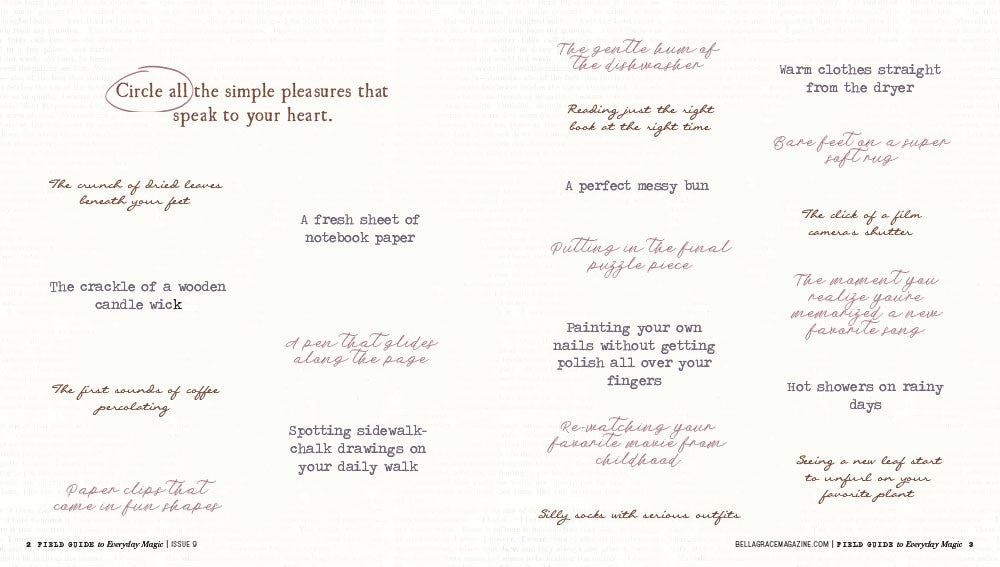 Circle all the simple pleasures that
speak to your heart.
The crunch of dried leaves
beneath your feet
The crackle of a wooden
candle wick
The first sounds of coffee
percolating
Paper clips that
come in fun shapes
A fresh sheet of
notebook paper
A pen that glides
along the page
Spotting sidewalk-
chalk drawings on
your daily walk
2 FIELD GUIDE to Everyday Magic | ISSUE 9
The gentle hum of
the dishwasher
Reading just the right
book at the right time
A perfect messy bun
Putting in the final
puzzle piece
Painting your own
nails without getting
polish all over your
fingers
Re-watching your
favorite movie from
childhood
Silly socks with serious outfits
Warm clothes straight
from the dryer
Bare feet on a super
soft rug
The click of a film
camera's shutter
The moment you
realize you're
memorized a new
favorite song
Hot showers on rainy
days
Seeing a new leaf start
to unfurl on your
favorite plant
BELLAGRACEMAGAZINE.COM | FIELD GUIDE to Everyday Magic 3